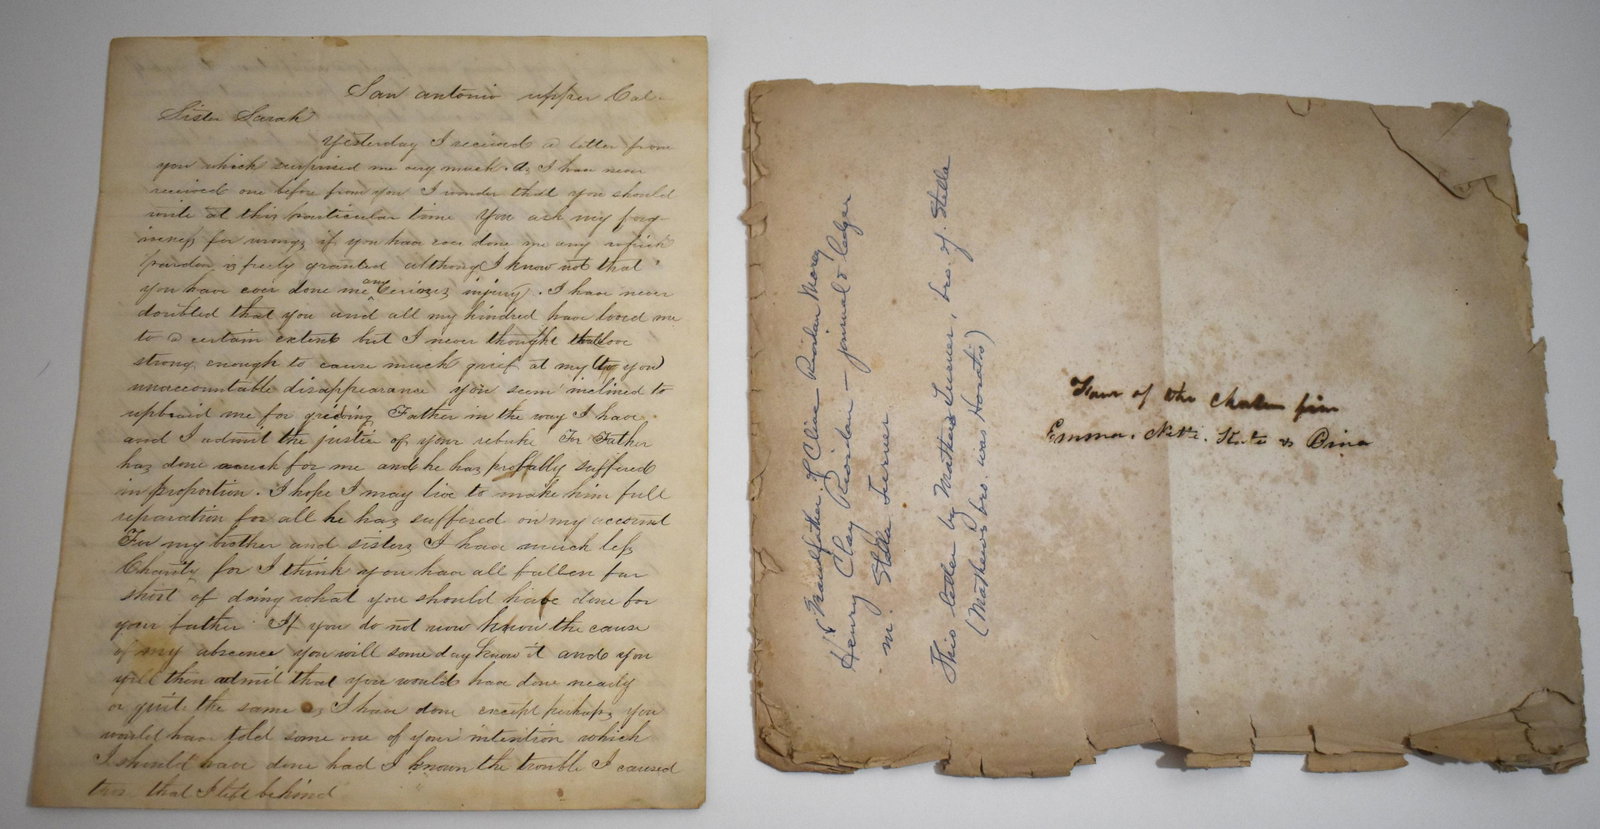 San antonio upper Cal-
Sister Sarah
Yesterday I received a letter from
you which surprised me very much. As I have never
received one before from you I wonder that you should
write at this particular time You ask my forg-
iveness for wrongs if you have ever done me any which
pardon is freely granted although I know not that
you have ever done me any serious injury. I have never
doubted that you and all my kindred have loved me
to a certain extent but I never thought that love
strong enough to cause much grief at my (to you)
unaccountable disappearance you seem inclined to
upbraid me for grieving Father in the way I have
and I admit the justice of your rebuke For Father
has done much for me and he has probably suffered
in proportion. I hope I may live to make him full
reparation for all he has suffered on my account
For my brother and sisters I have much less
Charity for I think you have all fallen far
short of doing what you should have done for
your father If you do not now know the cause
of my absence you will some day know it and you
will then admit that you would have done nearly
or quite the same as I have done except perhaps you
would have told some one of your intention which
I should have done had I known the trouble I caused
those that I left behind
Grandfather of Cline Riordan Morey
Henry Clay Riordan - journal & ledger
m. Stella Turner
This letter by Mathews Turner, bro. of Stella
(Mathew's bro. was Horatio)
of the
Emma.